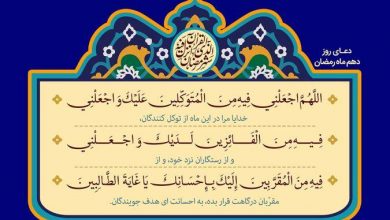 دعای روز
دهم ماه رمضان
اللَّهُمَّ اجْعَلْنِي فِيهِ مِنَ الْمُتَوَكِّلِينَ عَلَيْكَ وَ اجْعَلْنِي
خدایا مرا در این ماه از توکل کنندگان،
فِيهِ مِنَ الْفَائِزِينَ لَدَيْكَ وَ اجْعَلْنِي
و از رستگاران نزد خود، و از
فِيهِ مِنَ الْمُقَرَّبِينَ إِلَيْكَ بِإِحْسَانِكَ يَا غَايَةَ الطَّالِبِينَ
مقرّبان درگاهت قرار بده، به احسانت ای هدف جویندگان.